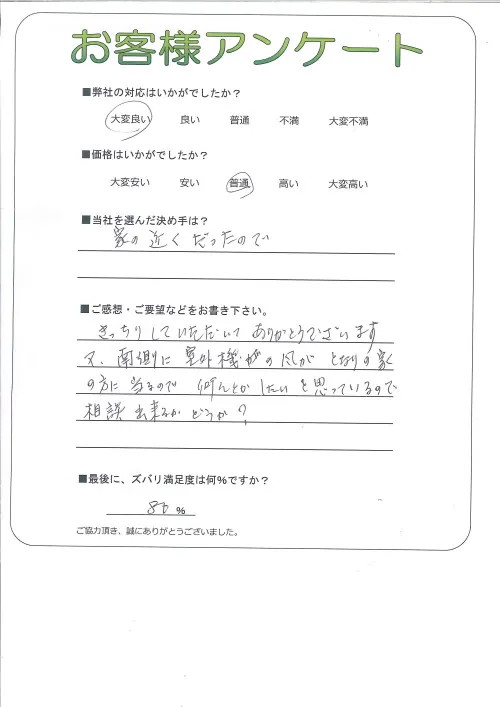 お客様アンケート
■弊社の対応はいかがでしたか？
大変良い 良い 普通 不満 大変不満
■価格はいかがでしたか？
大変安い 安い 普通 高い 大変高い
■当社を選んだ決め手は？
家の近くだったので
■ご感想・ご要望などをお書き下さい。
きっちりしていただいて ありがとうございます
又、南側に室外機の風が となりの家
の方に当るので 何んとかしたいと思っているので
相談出来るかどうか？
■最後に、ズバリ満足度は何％ですか？
％
ご協力頂き、誠にありがとうございました。